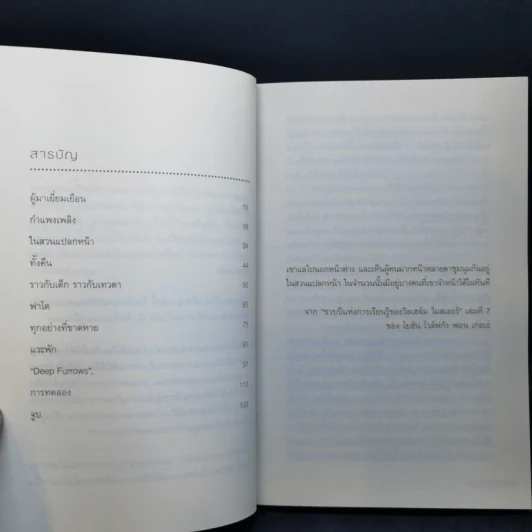 สารบัญ
ผู้มาเยี่ยมเยือน 10
กำแพงเพลิง 18
ในสวนแปลกหน้า 34
ทั้งคืน 44
ราวกับเด็ก ราวกับเทวดา 50
ฟาโด 65
ทุกอย่างที่ขาดหาย 75
แวะพัก 81
"Deep Furrows". 97
การทดลอง 110
จูบ 123
เขาแลไปนอกหน้าต่าง และเห็นผู้คนมากหน้าหลายตาชุมนุมกันอยู่
ในสวนแปลกหน้า ในจำนวนนั้นมีอยู่บางคนที่เขาจำหน้าได้ในทันที
จาก "ขวบปีแห่งการเรียนรู้ของวิลเฮล์ม ไมสเตอร์" เล่มที่ 7
ของ โยฮัน โวล์ฟกัง ฟอน เกอเธ่